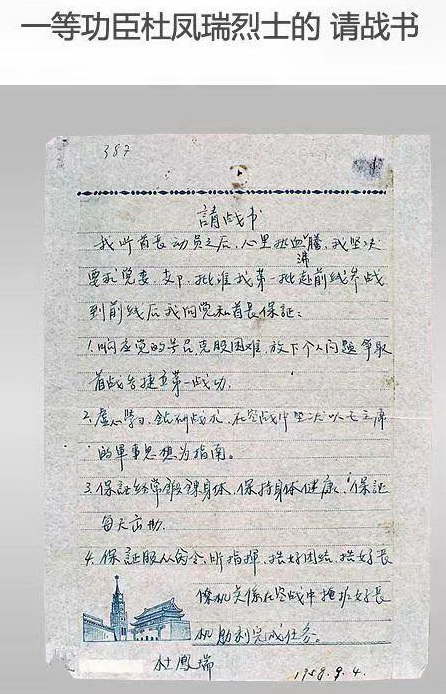 一等功臣杜凤瑞烈士的 请战书
387
請战书
我听首長动员之后，心里热血沸騰，我坚决
要求党委、支部，批准我第一批赴前线参战
到前线后我向党和首長保証：
1.响应党的号召克服困难，放下个人问题争取
首战告捷立第一战功。
2.虚心学习、钻研战术，在空战中坚决以毛主席
的軍事思想为指南。
3.保証经常鍛鍊身体，保持身体健康，保証
每天出勤。
4.保証服从命令，听指揮，搞好团结，搞好長
僚机关係在空战中掩护好長
机勝利完成任务。
杜鳳瑞
1958.9.4.